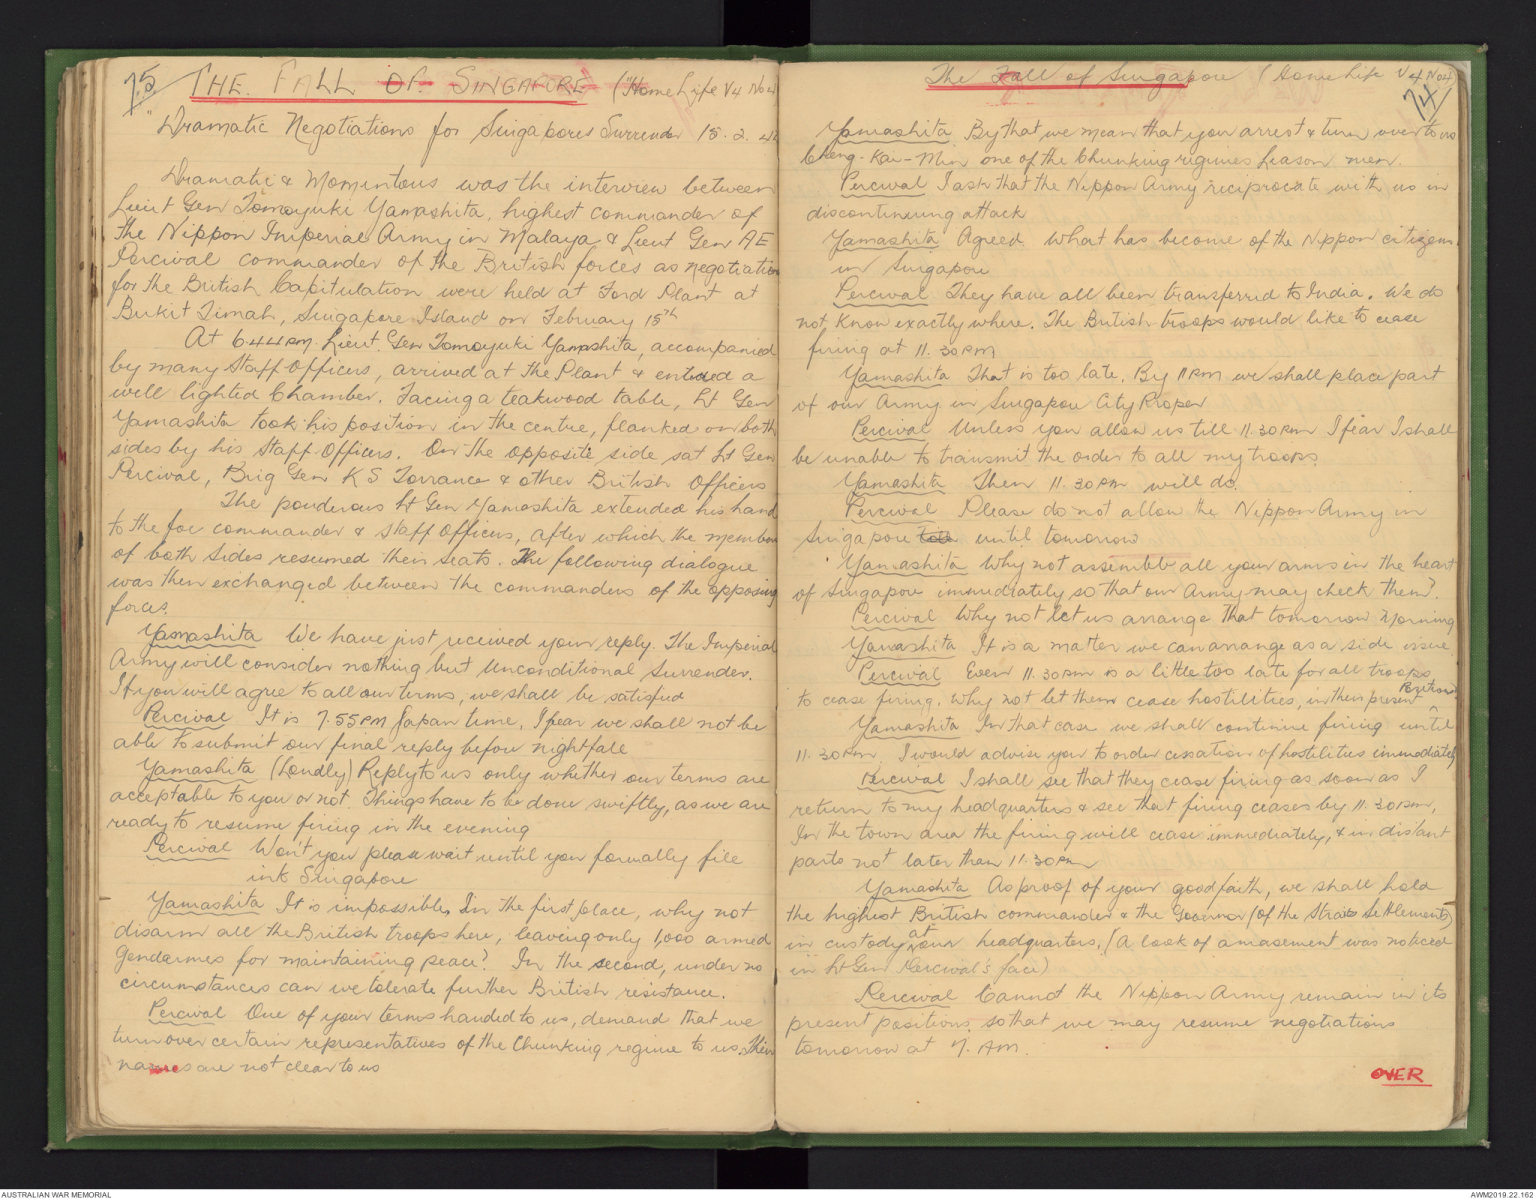 75
THE FALL OF SINGAPORE ("Home Life V4 No4
"Dramatic Negotiations for Singapores Surrender 15. 2. 42
Dramatic & Momentous was the interview between
Lieut Gen Tomoyuki Yamashita, highest commander of
the Nippon Imperial Army in Malaya & Lieut Gen AE
Percival commander of the British forces as negotiation
for the British Capitulation were held at Ford Plant at
Bukit Timah, Singapore Island on February 15th
At 6.44 PM. Lieut. Gen Tomoyuki Yamashita, accompanied
by many Staff Officers, arrived at the Plant & entered a
well lighted Chamber. Facing a teakwood table, Lt Gen
Yamashita took his position in the centre, flanked on both
sides by his Staff Officers. On the opposite side sat Lt Gen
Percival, Brig Gen K S Torrance & other British Officers
The ponderous Lt Gen Yamashita extended his hand
to the foe commander & staff Officers, after which the members
of both sides resumed their seats. The following dialogue
was then exchanged between the commanders of the opposing
forces.
Yamashita We have just received your reply. The Imperial
Army will consider nothing but Unconditional Surrender.
If you will agree to all our terms, we shall be satisfied
Percival It is 7.55 PM Japan time, I fear we shall not be
able to submit our final reply before nightfall
Yamashita (Loudly) Reply to us only whether our terms are
acceptable to you or not. Things have to be done swiftly, as we are
ready to resume firing in the evening
Percival Won't you please wait until you formally file
ink Singapore
Yamashita It is impossible. In the first place, why not
disarm all the British troops here, leaving only 1,000 armed
Gendarmes for maintaining peace? In the second, under no
circumstances can we tolerate further British resistance.
Percival One of your terms handed to us, demand that we
turn over certain representatives of the Chunking regime to us. Their
names are not clear to us
The Fall of Singapore (Home Life V4 No4
74
Yamashita By that we mean that you arrest & turn over to us
Cheng-Kai-Min one of the Chunking regimes liason men.
Percival I ask that the Nippon Army reciprocate with us in
discontinuing attack
Yamashita Agreed. What has become of the Nippon citizens
in Singapore
Percival They have all been transferred to India. We do
not know exactly where. The British troops would like to cease
firing at 11.30PM
Yamashita That is too late. By 11PM we shall place part
of our Army in Singapore City Proper
Percival Unless you allow us till 11.30PM I fear I shall
be unable to transmit the order to all my troops.
Yamashita Then 11.30PM will do.
Percival Please do not allow the Nippon Army in
Singapore until tomorrow
Yamashita Why not assemble all your arms in the heart
of Singapore immediately so that our Army may check them?
Percival Why not let us arrange that tomorrow morning
Yamashita It is a matter we can arrange as a side issue
Percival Even 11.30PM is a little too late for all troops
to cease firing. Why not let them cease hostilities, in their present Positions
Yamashita In that case we shall continue firing until
11.30PM. I would advise you to order cessation of hostilities immediately
Percival I shall see that they cease firing as soon as I
return to my headquarters & see that firing ceases by 11.30PM.
In the town area the firing will cease immediately, & in distant
parts not later than 11.30PM
Yamashita As proof of your good faith, we shall hold
the highest British commander & the Governor (of the Straits Settlements)
in custody at our headquarters. (A look of amasement was noticed
in Lt Gen Percival's face)
Percival Cannot the Nippon Army remain in its
present positions, so that we may resume negotiations
tomorrow at 7. AM.
OVER
AUSTRALIAN WAR MEMORIAL
AWM2019.22.162